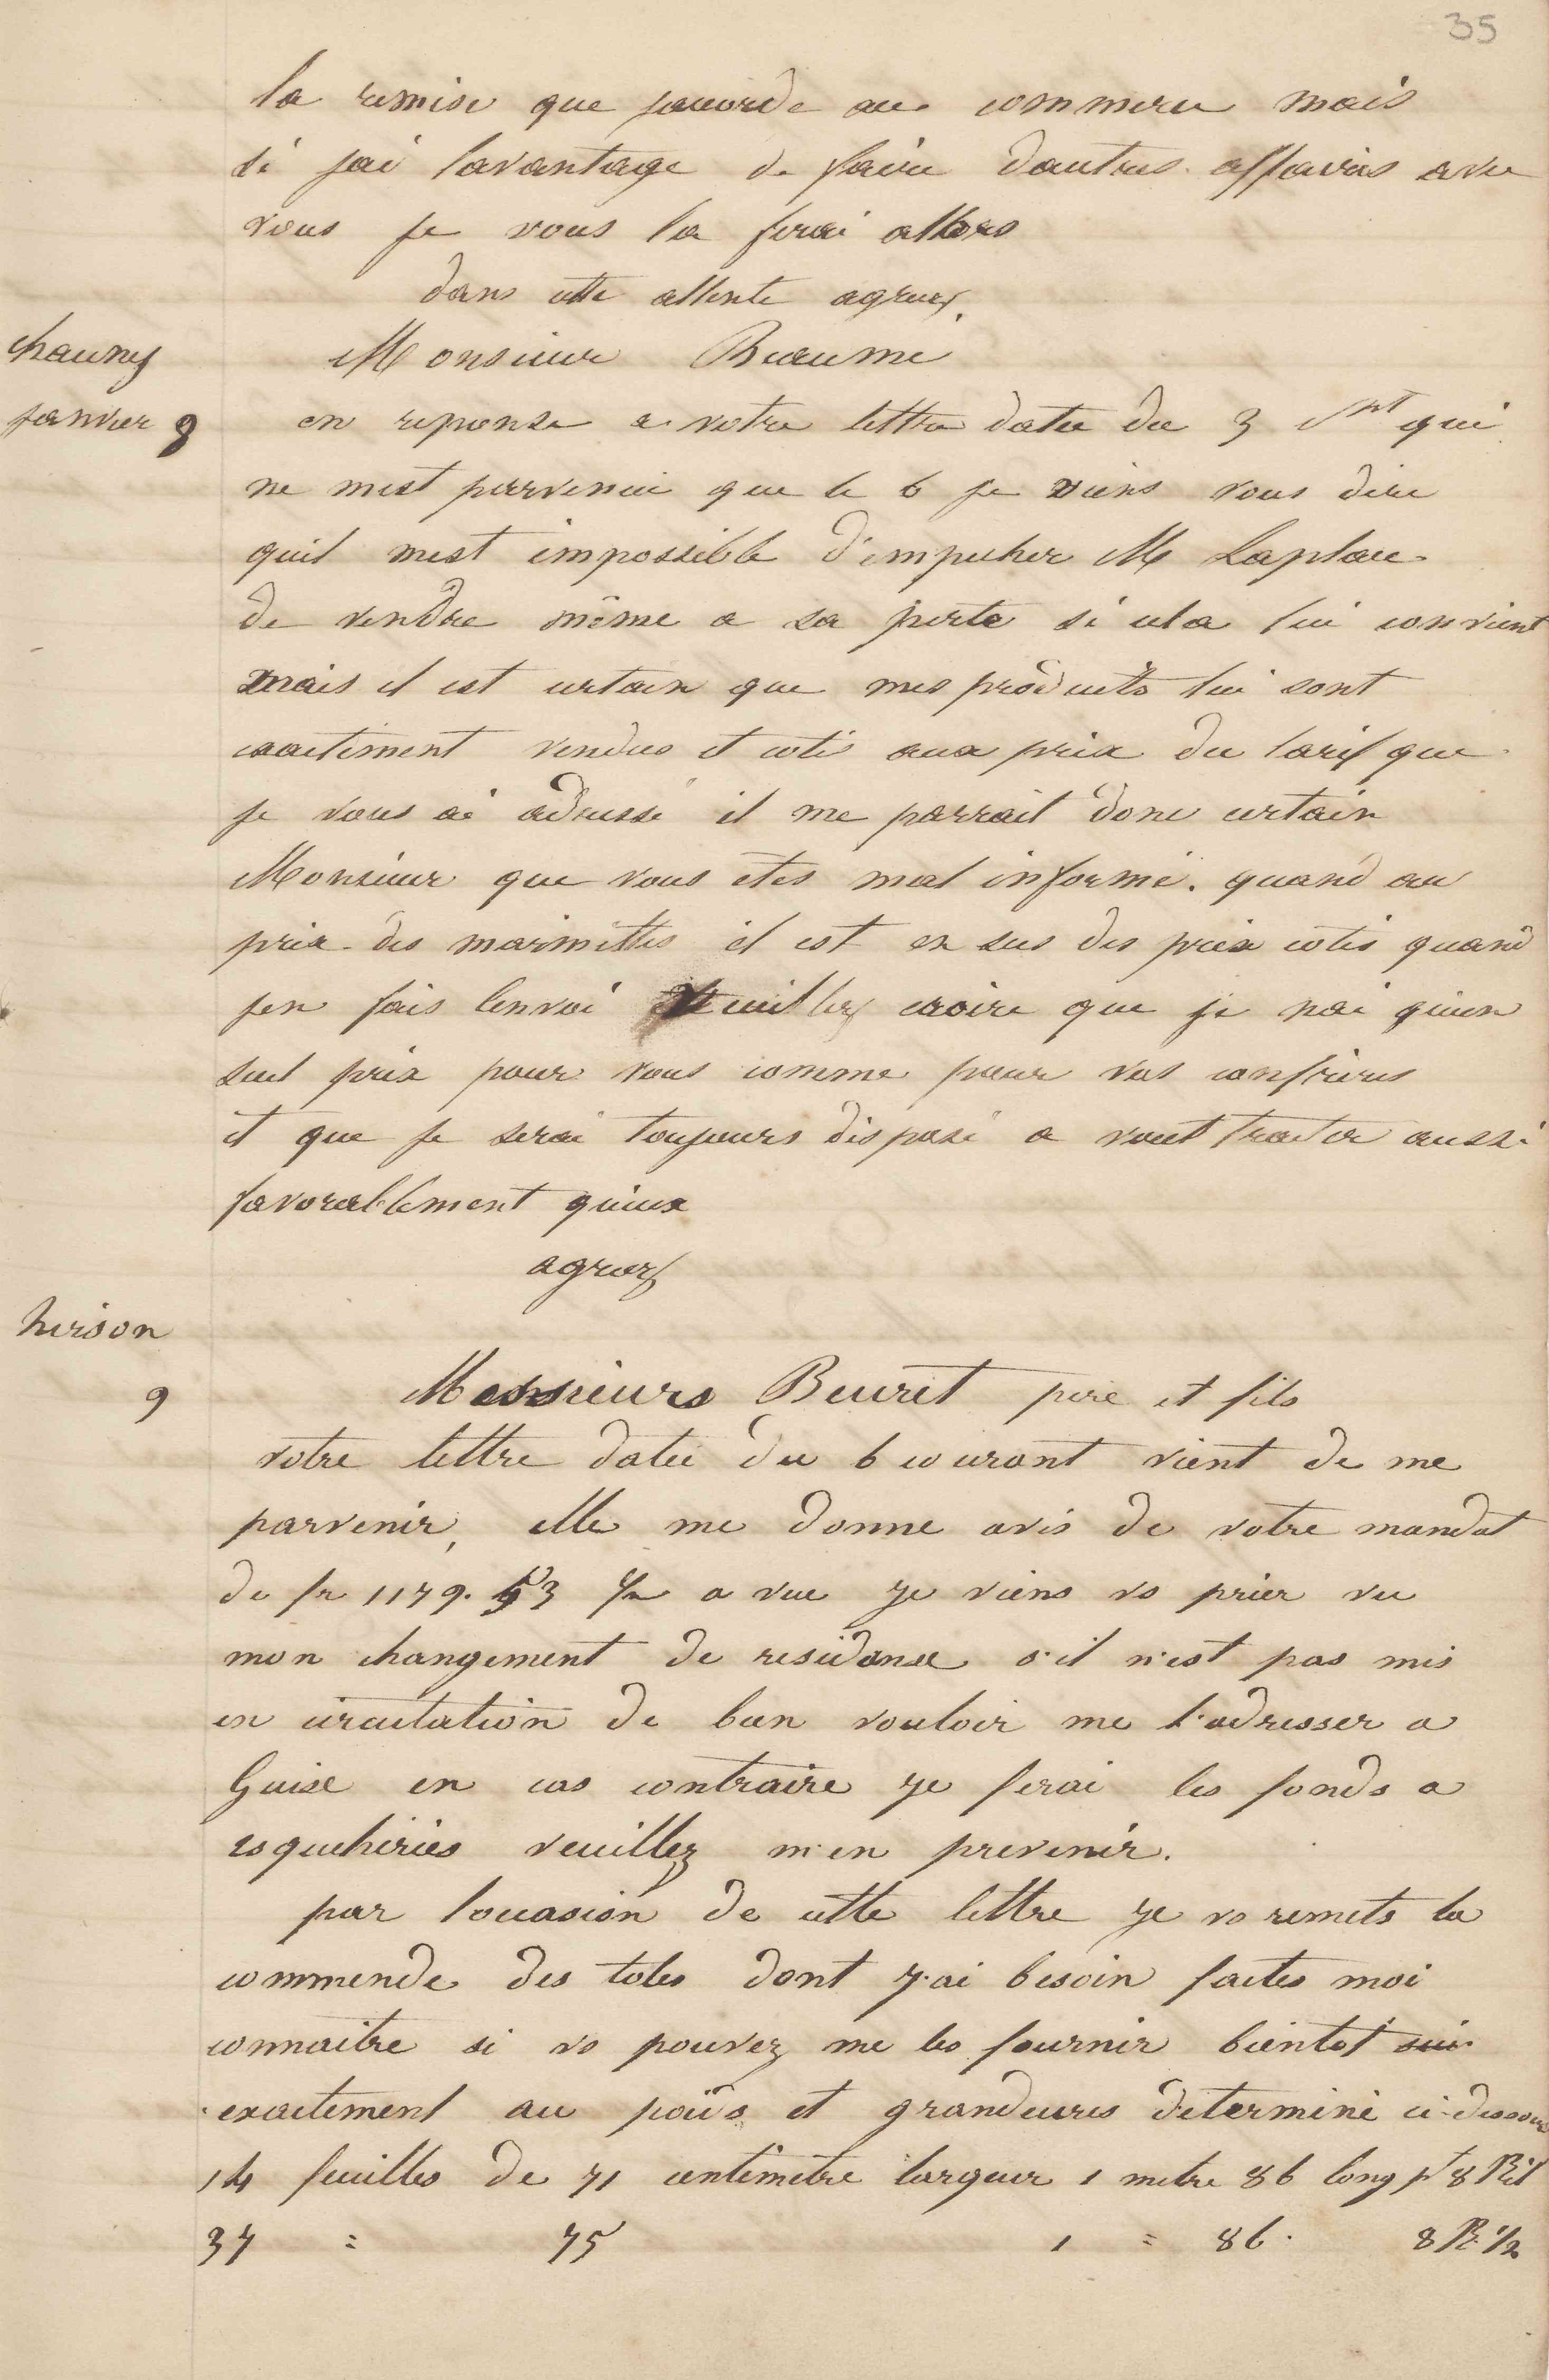 35
la remise que jaccorde au commerce mais
si jai lavantage de faire dautres affaires avec
vous je vous la ferai allors
dans cette attente agreez.
chauny
Monsieur Beaumé
janvier 8
en reponse a votre lettre datée du 3 Ct qui
ne mest parvenue que le 6 je viens vous dire
quil mest impossible d'empecher M Laplace
de vendre même a sa perte si cela lui convient
mais il est certain que mes produits lui sont
exactement vendus et cotés aux prix du tarif que
je vous ai adressé il me parrait donc certain
Monsieur que vous etes mal informé. quand au
prix des marmittes il est en sus des prix cotés quand
jen fais lenvoi Veuillez croire que je nai quun
seul prix pour vous comme pour vos confrères
et que je serai toujours disposé a vout traiter aussi
favorablement queux
agreez
hirson
9
Messieurs Beuret pere et fils
votre lettre datée du 6 courant vient de me
parvenir, elle me donne avis de votre mandat
de fr 1179. 53 a vue je viens vs prier vu
mon changement de residence s'il n'est pas mis
en circulation de bien vouloir me l'adresser a
Guise en cas contraire je ferai les fonds a
esqueheries veuillez m'en prevenir.
par loccasion de cette lettre je vs remets la
commende des toles dont j'ai besoin faites moi
connaitre si vs pouvez me les fournir bientot
exactement au poids et grandeures determiné ci-dessous
14 feuilles de 71 centimètre largeur 1 metre 86 long pt 8 Kil
37 = 75 1 = 86. 8 K. 1/2